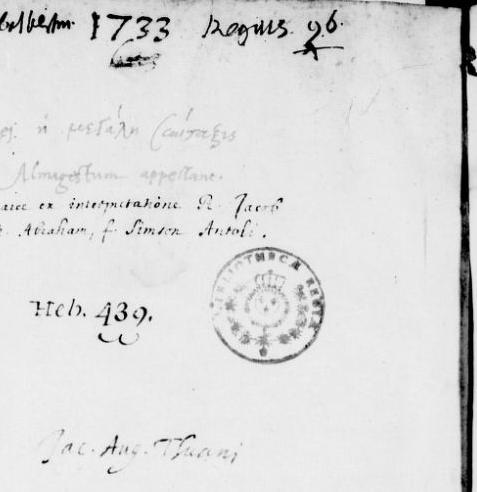 Colbertin. 1733 Regius. 96.
ἡ μεγάλη Σύνταξις
Almagestum appellant.
aice ex interpretatione R. Jacob
Abraham, f. Simson Antoli.
BIBLIOTHECÆ REGIÆ
Heb. 439.
Jac. Aug. Thuani